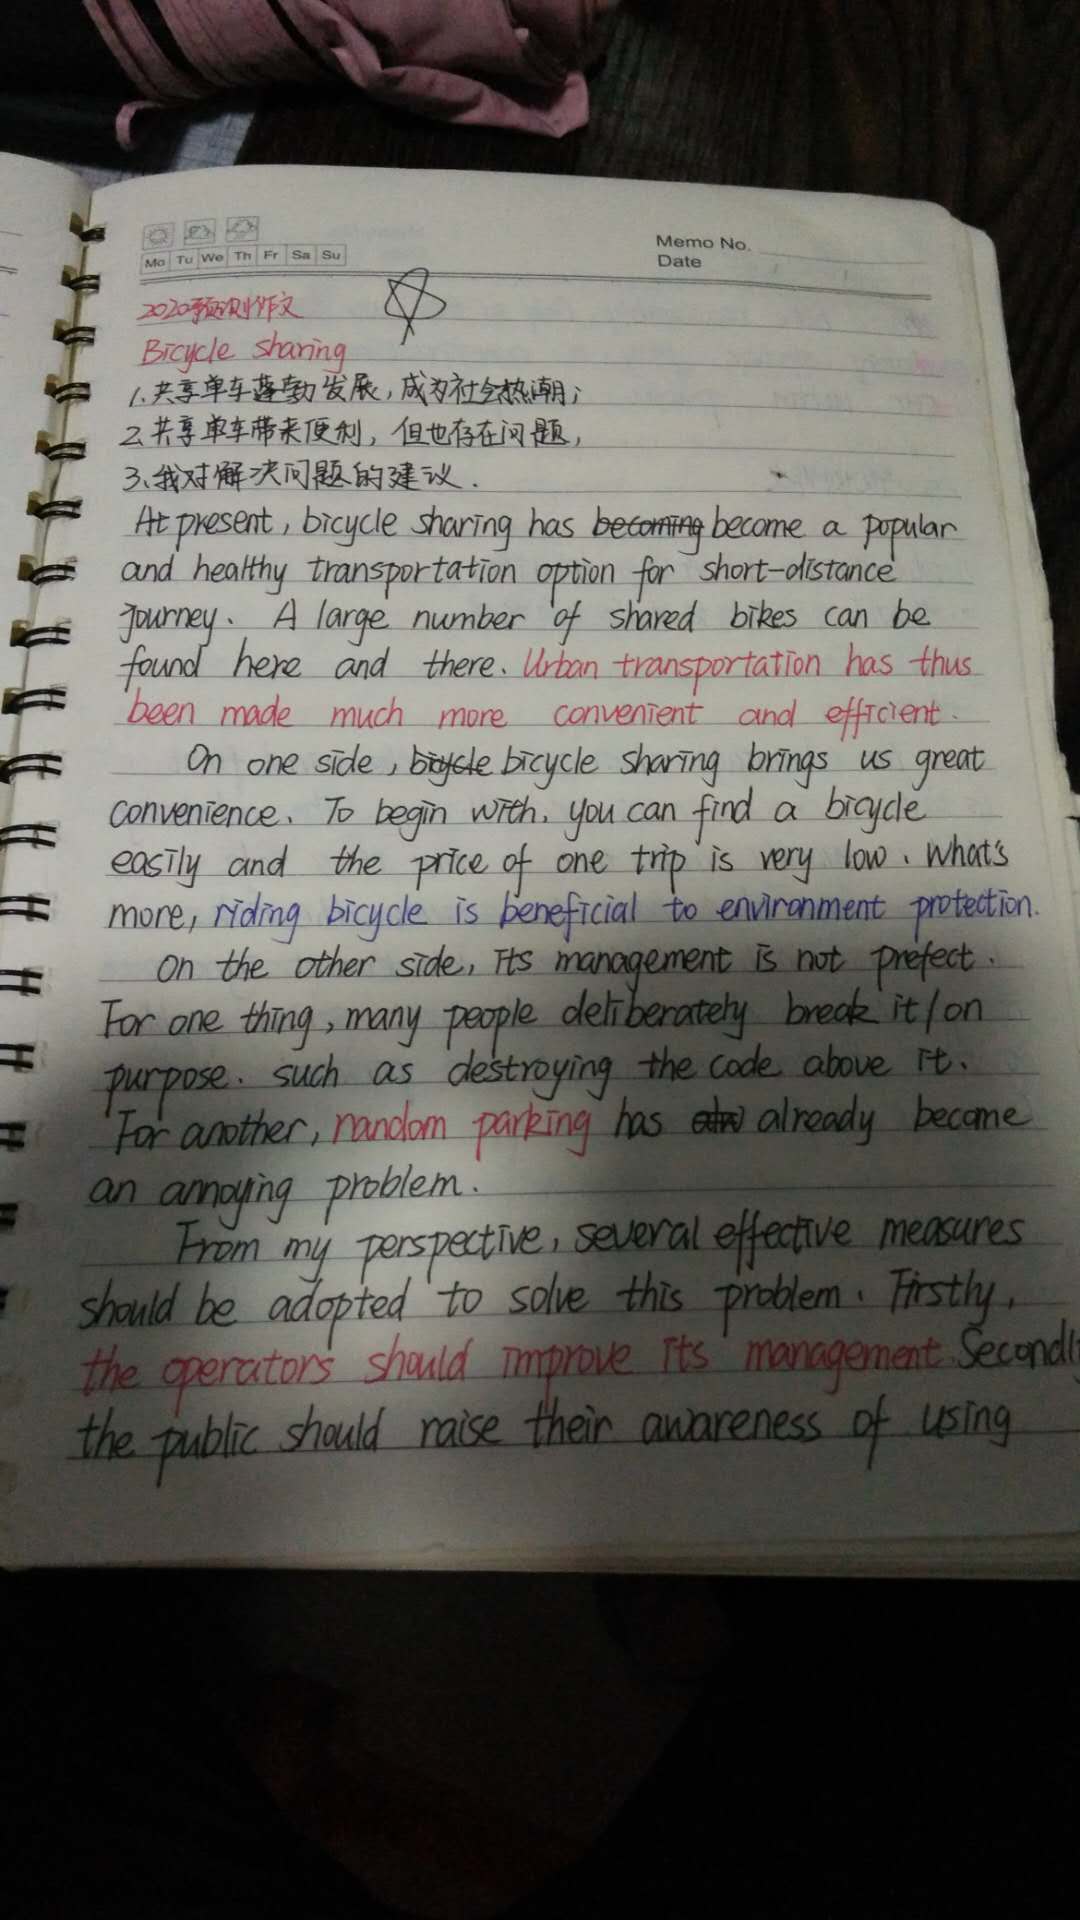 Mo Tu We Th Fr Sa Su
Memo No.
Date
2020预测作文
Bicycle sharing
1.共享单车蓬勃发展,成为社会热潮;
2.共享单车带来便利,但也存在问题,
3.我对解决问题的建议.
At present, bicycle sharing has becoming become a popular
and healthy transportation option for short-distance
journey. A large number of shared bikes can be
found here and there. Urban transportation has thus
been made much more convenient and efficient.
On one side, bicycle bicycle sharing brings us great
convenience. To begin with, you can find a bicycle
easily and the price of one trip is very low. What's
more, riding bicycle is beneficial to environment protection.
On the other side, its management is not prefect.
For one thing, many people deliberately break it/on
purpose. such as destroying the code above it.
For another, random parking has already become
an annoying problem.
From my perspective, several effective measures
should be adopted to solve this problem. Firstly,
the operators should improve its management. Secondl
the public should raise their awareness of using